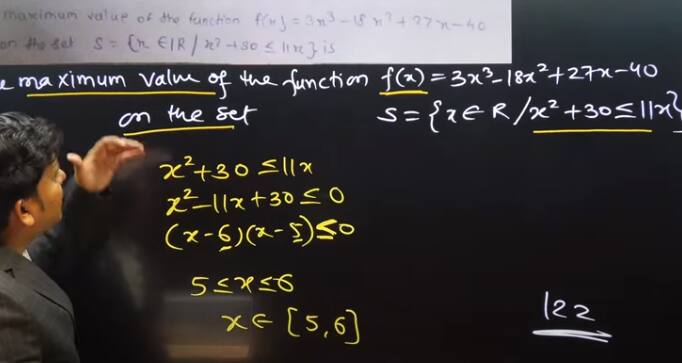 maximum value of the function f(x) = 3x³ - 18x² + 27x - 40
on the set S = {x ∈ IR / x² + 30 ≤ 11x} is
e maximum value of the function f(x) = 3x³ - 18x² + 27x - 40
on the set S = {x ∈ R / x² + 30 ≤ 11x}
x² + 30 ≤ 11x
x² - 11x + 30 ≤ 0
(x - 6)(x - 5) ≤ 0
5 ≤ x ≤ 6
x ∈ [5, 6]
122